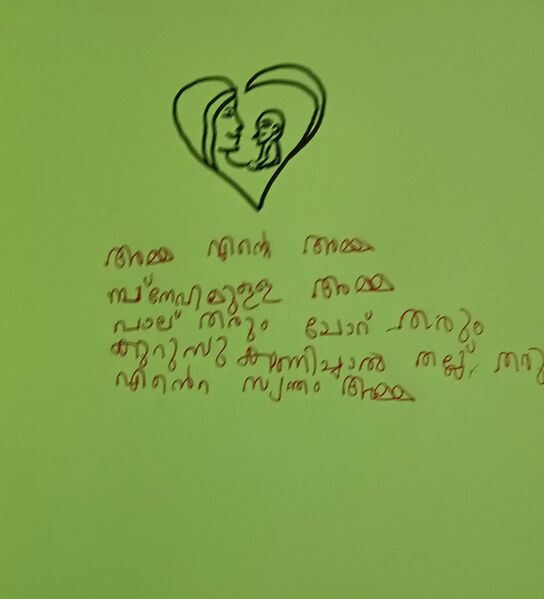 അമ്മ എന്റെ അമ്മ
സ്നേഹമുള്ള അമ്മ
പാല് തരും ചോറ് തരും
കുറുമ്പു കാണിച്ചാൽ തല്ല് തരു
എന്റെ സ്വന്തം അമ്മ